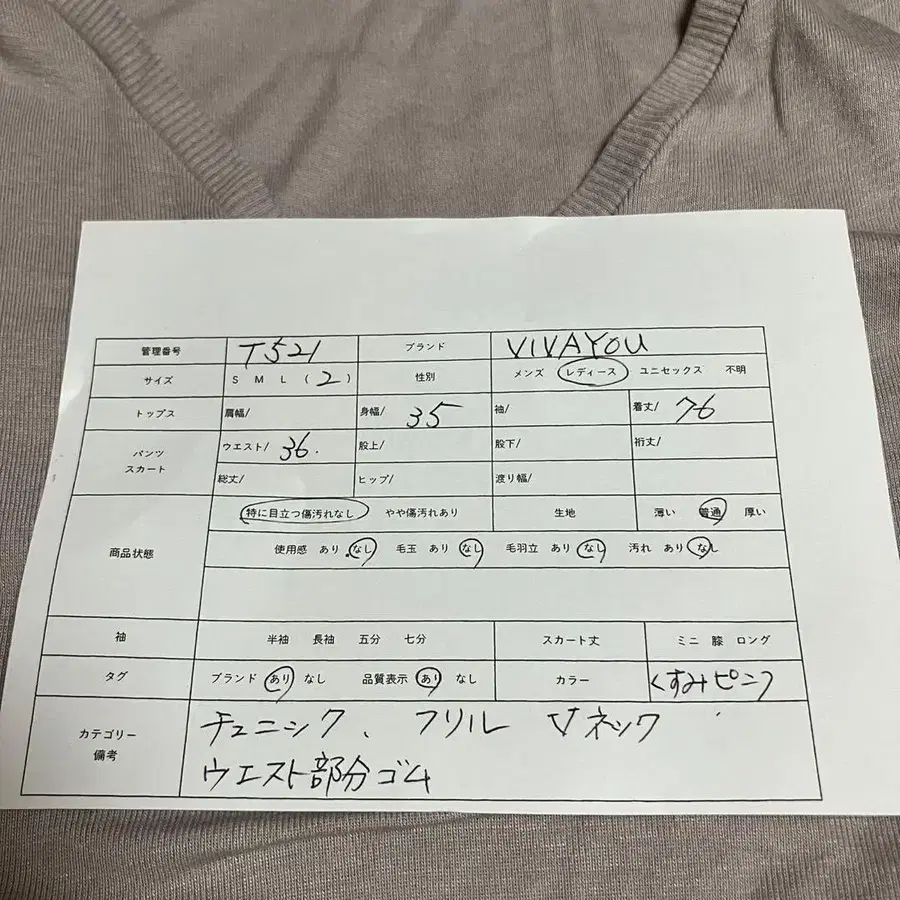 管理番号 T521 ブランド VIVAYOU
サイズ S M L (2) 性別 メンズ レディース ユニセックス 不明
トップス 肩幅/ 身幅/ 35 袖/ 着丈/ 76
パンツ スカート ウエスト/ 36. 股上/ 股下/ 裄丈/
総丈/ ヒップ/ 渡り幅/
商品状態 特に目立つ傷汚れなし やや傷汚れあり 生地 薄い 普通 厚い
使用感 あり なし 毛玉 あり なし 毛羽立 あり なし 汚れ あり なし
袖 半袖 長袖 五分 七分 スカート丈 ミニ 膝 ロング
タグ ブランド あり なし 品質表示 あり なし カラー くすみピンク
カテゴリー 備考 チュニック、フリル Vネック
ウエスト部分ゴム